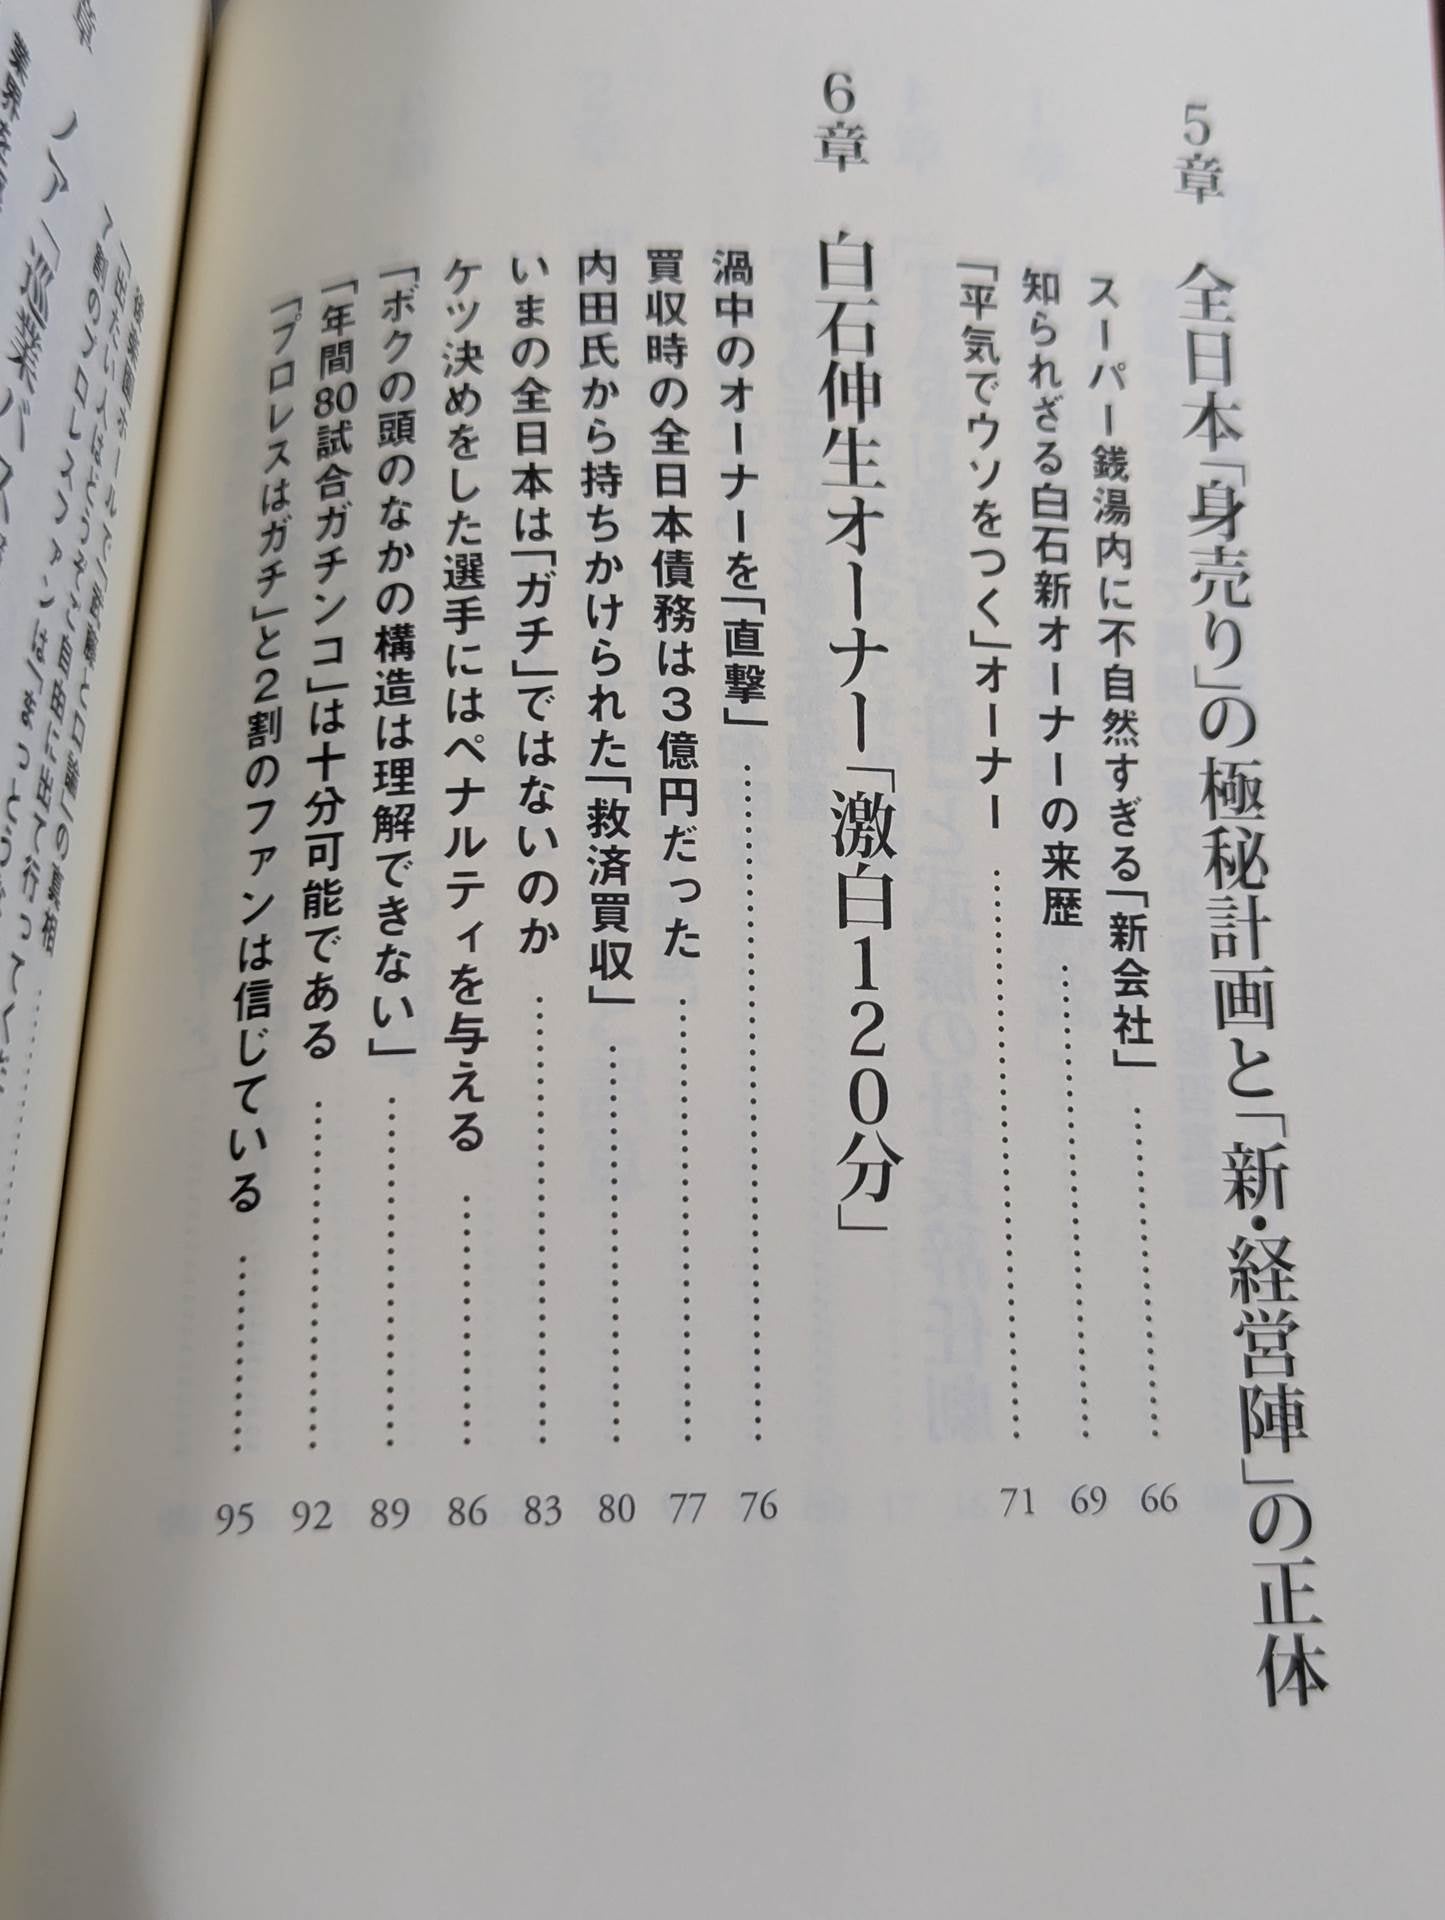 5章 全日本「身売り」の極秘計画と「新・経営陣」の正体
スーパー銭湯内に不自然すぎる「新会社」……………………66
知られざる白石新オーナーの来歴……………………69
「平気でウソをつく」オーナー……………………71
6章 白石伸生オーナー「激白120分」
渦中のオーナーを「直撃」……………………76
買収時の全日本債務は3億円だった……………………77
内田氏から持ちかけられた「救済買収」……………………80
いまの全日本は「ガチ」ではないのか……………………83
ケツ決めをした選手にはペナルティを与える……………………86
「ボクの頭のなかの構造は理解できない」……………………89
「年間80試合ガチンコ」は十分可能である……………………92
「プロレスはガチ」と2割のファンは信じている……………………95
章 ノア「巡業バス
業界
の真相
「出たい人はどうぞご自由に出て行ってくだ
割のプロレスファンは